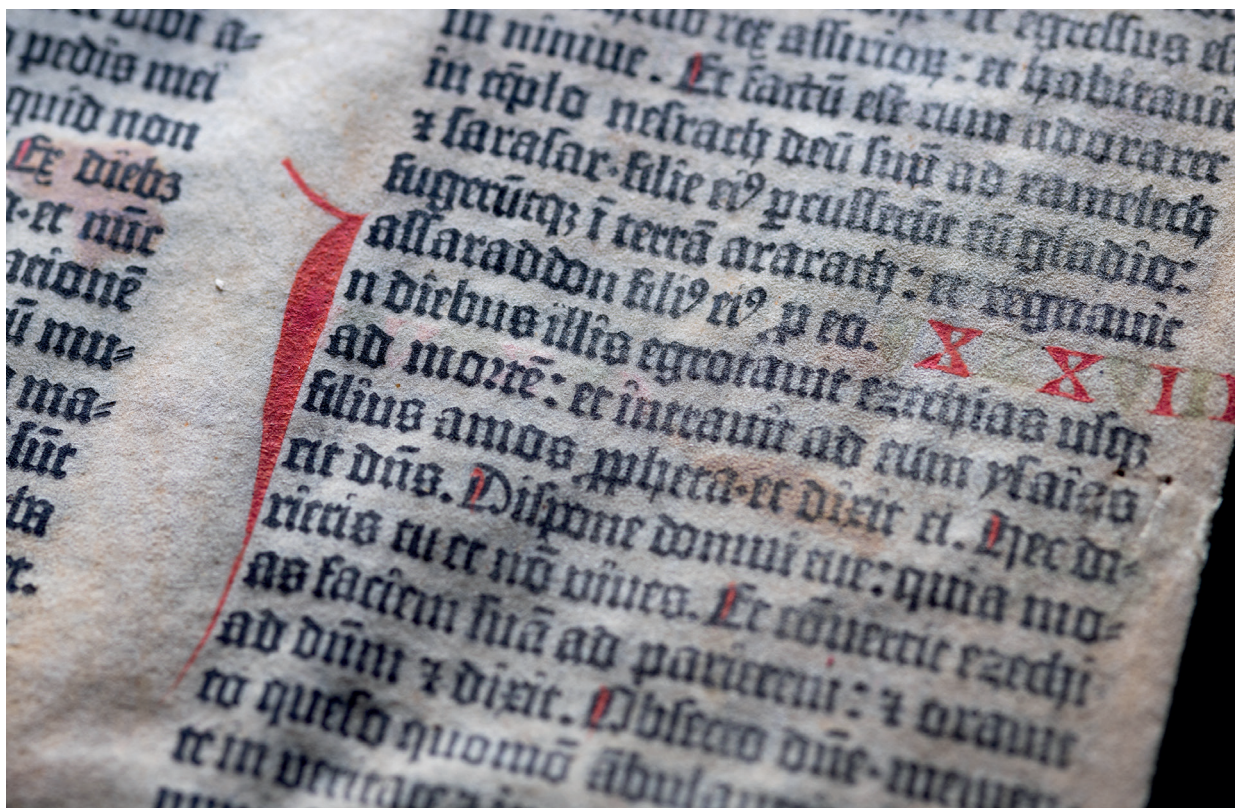 pedis mei
quid non
Ex dieb3
et nūc
mu=
ma=
sūt
rex assirioꝝ: et habitauit
in niniue. Et factū est cum adoraret
in tēplo nesrach deū suū ad ramelech
⁊ sarasar·filie ei⁹ ꝑcusserūt eū gladio:
fugerūtqꝫ ī terrā ararath: et regnauit
assaraddon fili⁹ ei⁹ ꝓ eo. X X I I
In diebus illis egrotauit ezechias usqꝫ
ad mortē: et intrauit ad eum ysaias
filius amos ꝓpheta·et dixit ei. Hec di=
cit dn̄s. Dispone domui tue: quia mo=
rieris tu et nō viues. Et cōuertit ezechi
as faciem suā ad parietem: ⁊ orauit
ad dn̄m ⁊ dixit. Obsecro dn̄e·memen
to queso quomō ābulau
te in veritate ⁊ i